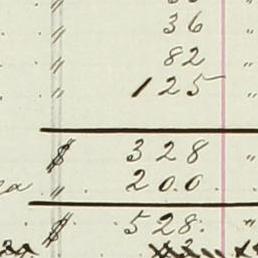 " 36 "
" 82 "
" 125 "
$ 328 "
" 200 "
$ 528 "